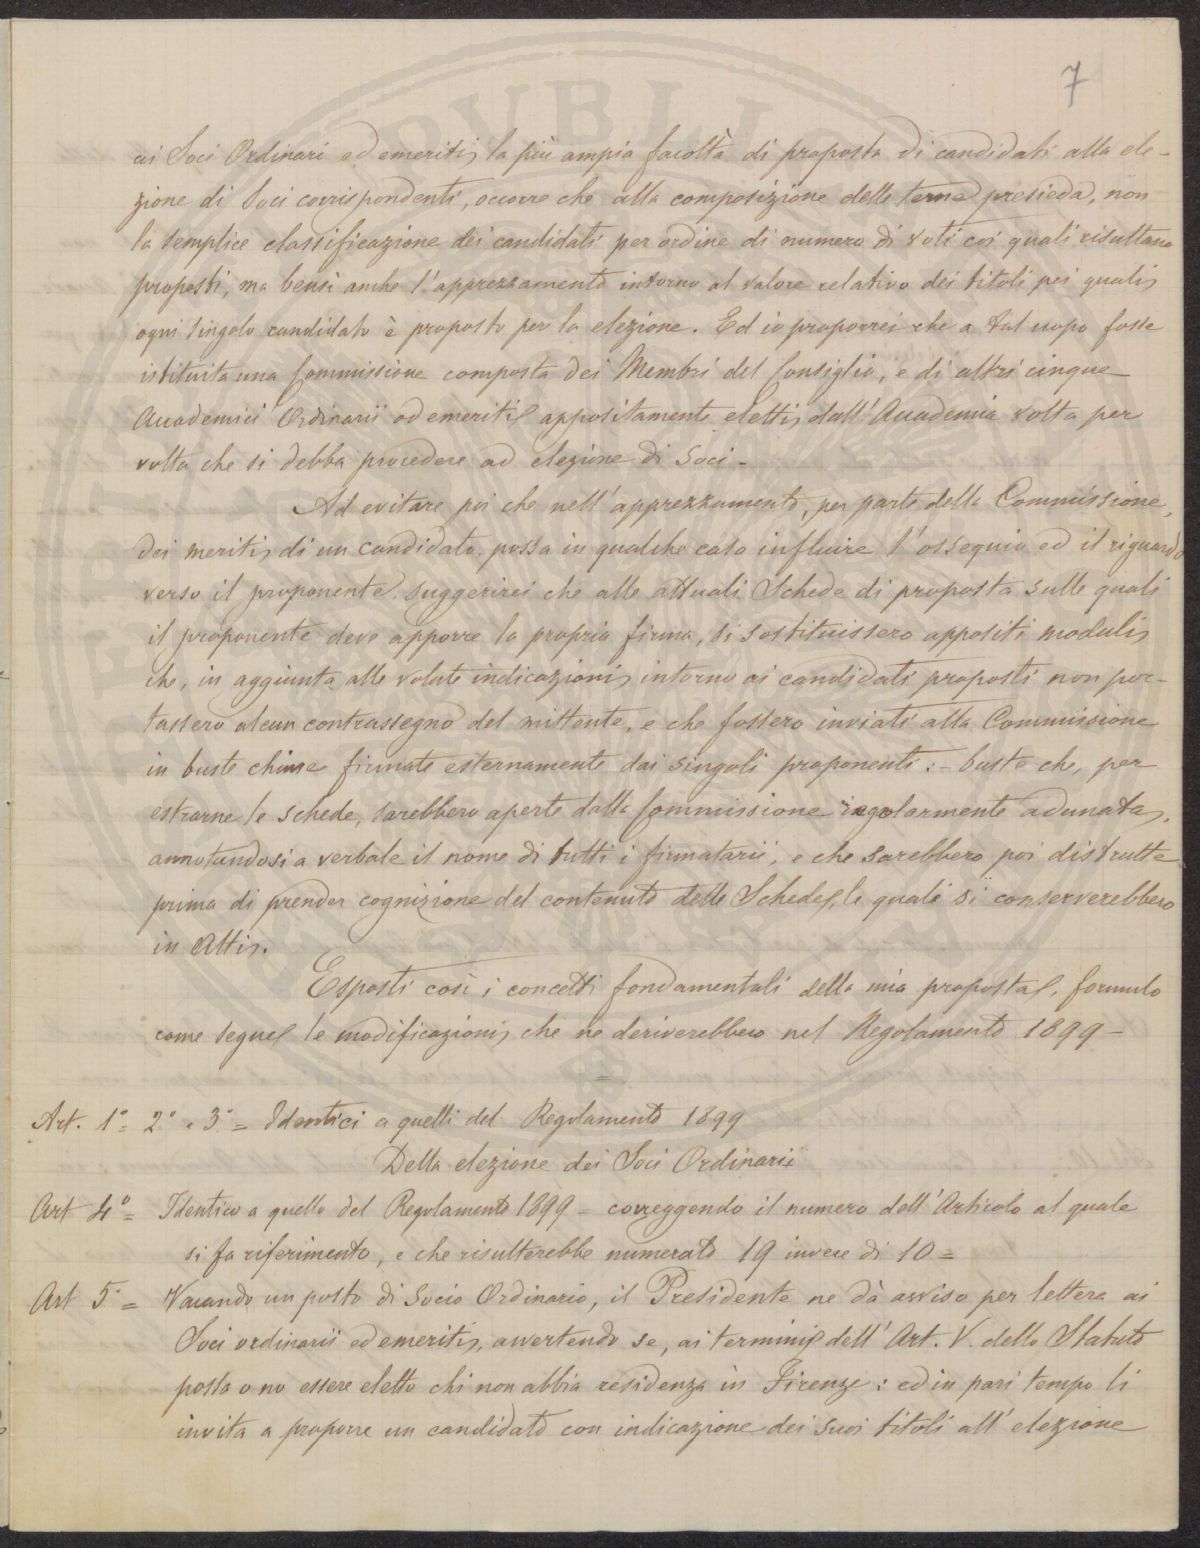 7
ai Soci Ordinari ed emeriti, la più ampia facoltà di proposta di candidati alla ele-
zione di Soci corrispondenti, occorre che alla composizione delle terne presieda, non
la semplice classificazione dei candidati per ordine di numero di voti coi quali risultano
proposti, ma bensì anche l'apprezzamento intorno al valore relativo dei titoli pei quali
ogni singolo candidato è proposto per la elezione. Ed io proporrei che a tal uopo fosse
istituita una Commissione composta dei Membri del Consiglio, e di altri cinque
Accademici Ordinarii od emeriti appositamente eletti, dall'Accademia volta per
volta che si debba procedere ad elezione di Soci -
Ad evitare poi che nell'apprezzamento, per parte della Commissione,
dei meriti di un candidato, possa in qualche caso influire l'ossequio ed il riguardo
verso il proponente, suggerirei che alle attuali Schede di proposta sulle quali
il proponente deve apporre la propria firma, si sostituissero appositi moduli,
che, in aggiunta alle volute indicazioni, intorno ai candidati proposti non por-
tassero alcun contrassegno del mittente, e che fossero inviati alla Commissione
in buste chiuse firmate esternamente dai singoli proponenti: - buste che, per
estrarne le schede, sarebbero aperte dalla Commissione regolarmente adunata,
annotandosi a verbale il nome di tutti i firmatarii, e che sarebbero poi distrutte
prima di prender cognizione del contenuto delle Schede, le quali si conserverebbero
in Atti.
Esposti così i concetti fondamentali della mia proposta, formulo
come segue le modificazioni, che ne deriverebbero nel Regolamento 1899 -
=
Art. 1° 2° e 3° = Identici a quelli del Regolamento 1899
Della elezione dei Soci Ordinarii
Art 4° = Identico a quello del Regolamento 1899 = correggendo il numero dell'Articolo al quale
si fa riferimento, e che risulterebbe numerato 19 invece di 10 =
Art 5° = Vacando un posto di Socio Ordinario, il Presidente ne dà avviso per lettera ai
Soci ordinarii ed emeriti, avvertendo se, ai termini dell'Art. V. dello Statuto
possa o no essere eletto chi non abbia residenza in Firenze: ed in pari tempo li
invita a proporre un candidato con indicazione dei suoi titoli all'elezione